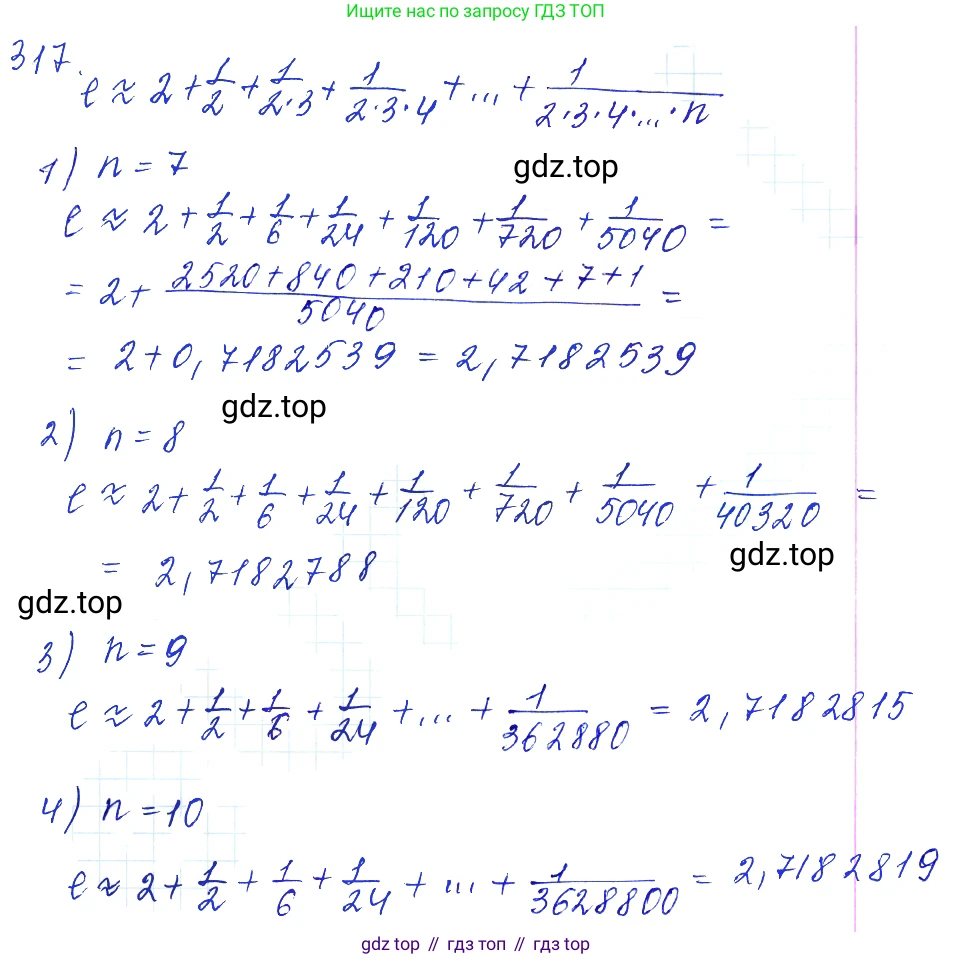 Ищите нас по запросу ГДЗ ТОП
317.
e ≈ 2 + 1/2 + 1/2·3 + 1/2·3·4 + ... + 1/2·3·4·...·n
1) n = 7
gdz.top
e ≈ 2 + 1/2 + 1/6 + 1/24 + 1/120 + 1/720 + 1/5040 =
= 2 + 2520+840+210+42+7+1/5040 =
= 2+0,7182539 = 2,7182539
gdz.top
2) n = 8
e ≈ 2 + 1/2 + 1/6 + 1/24 + 1/120 + 1/720 + 1/5040 + 1/40320 =
gdz.top
= 2,7182788
gdz.top
3) n = 9
e ≈ 2 + 1/2 + 1/6 + 1/24 + ... + 1/362880 = 2,7182815
4) n = 10
e ≈ 2 + 1/2 + 1/6 + 1/24 + ... + 1/3628800 = 2,7182819
gdz top // гдз топ // gdz top